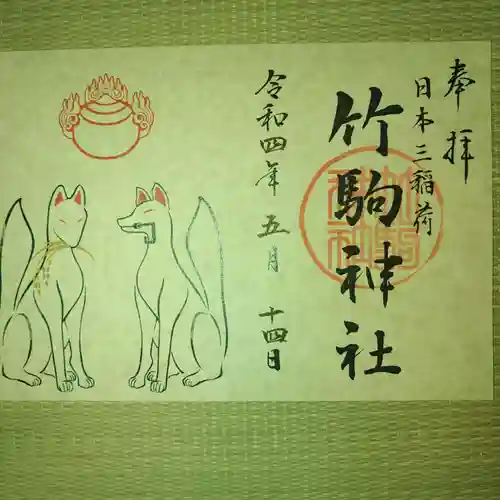 奉拝
日本三稲荷
竹駒神社
令和四年 五月 十四日